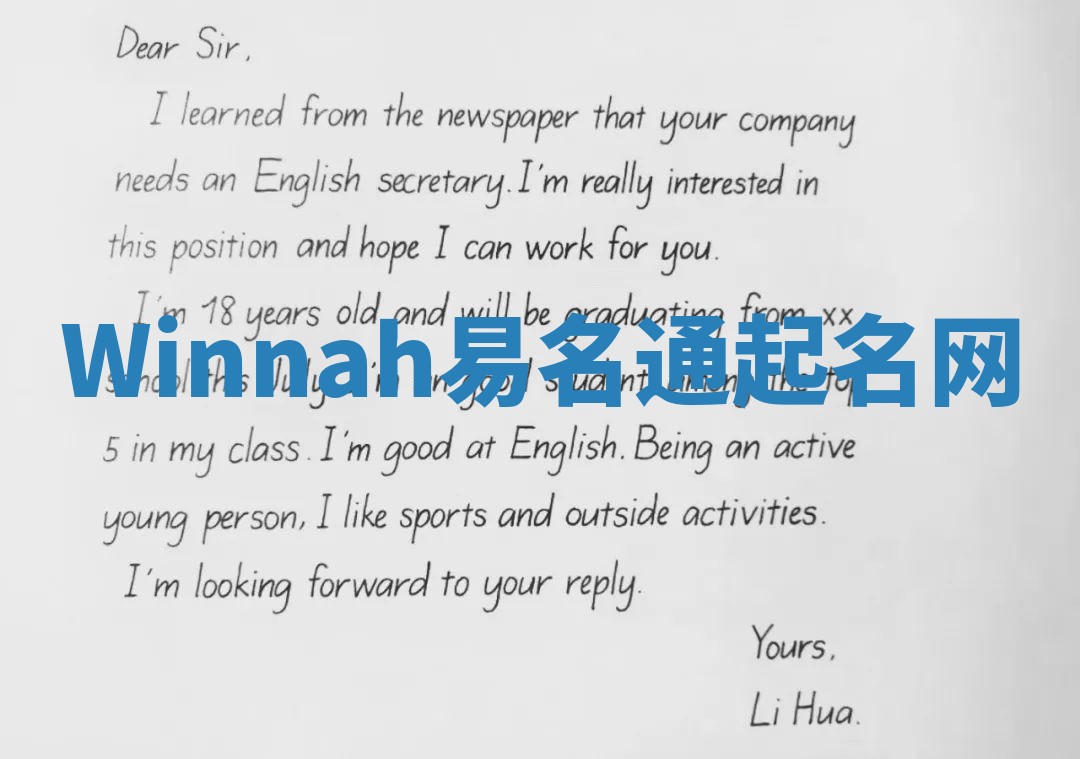 Dear Sir,
I learned from the newspaper that your company
needs an English secretary. I'm really interested in
this position and hope I can work for you.
I'm 18 years old and will be graduating from xx
Winnah易名通起名网
school this July. I'm good student among the top
5 in my class. I'm good at English. Being an active
young person, I like sports and outside activities.
I'm looking forward to your reply.
Yours,
Li Hua.